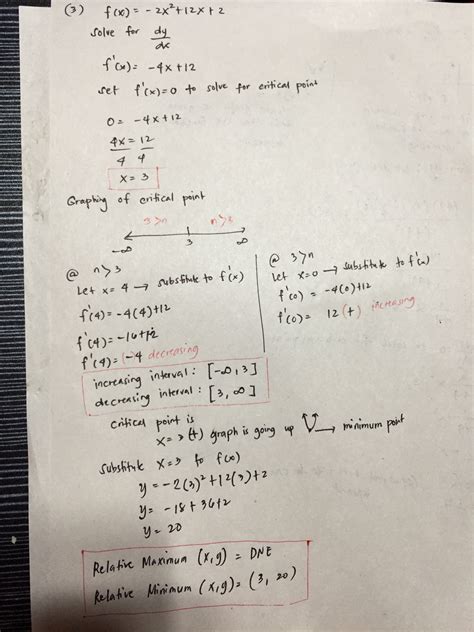 (3) f(x) = -2x²+12x+2
solve for dy/dx
f'(x) = -4x+12
set f'(x)=0 to solve for critical point
0 = -4x+12
4x = 12
4 4
x = 3
Graphing of critical point
3>n n>3
-∞ 3 ∞
@ n>3
Let x = 4 → substitute to f'(x)
f'(4) = -4(4)+12
f'(4) = -16+12
f'(4) = (-)4 decreasing
@ 3>n
let x=0 → substitute to f'(x)
f'(0) = -4(0)+12
f'(0) = 12 (+) increasing
increasing interval : [-∞, 3]
decreasing interval : [3, ∞]
critical point is
x = 3 (+) graph is going up → minimum point
substitute x=3 to f(x)
y = -2(3)²+12(3)+2
y = -18+36+2
y = 20
Relative Maximum (x,y) = DNE
Relative Minimum (x,y) = (3, 20)